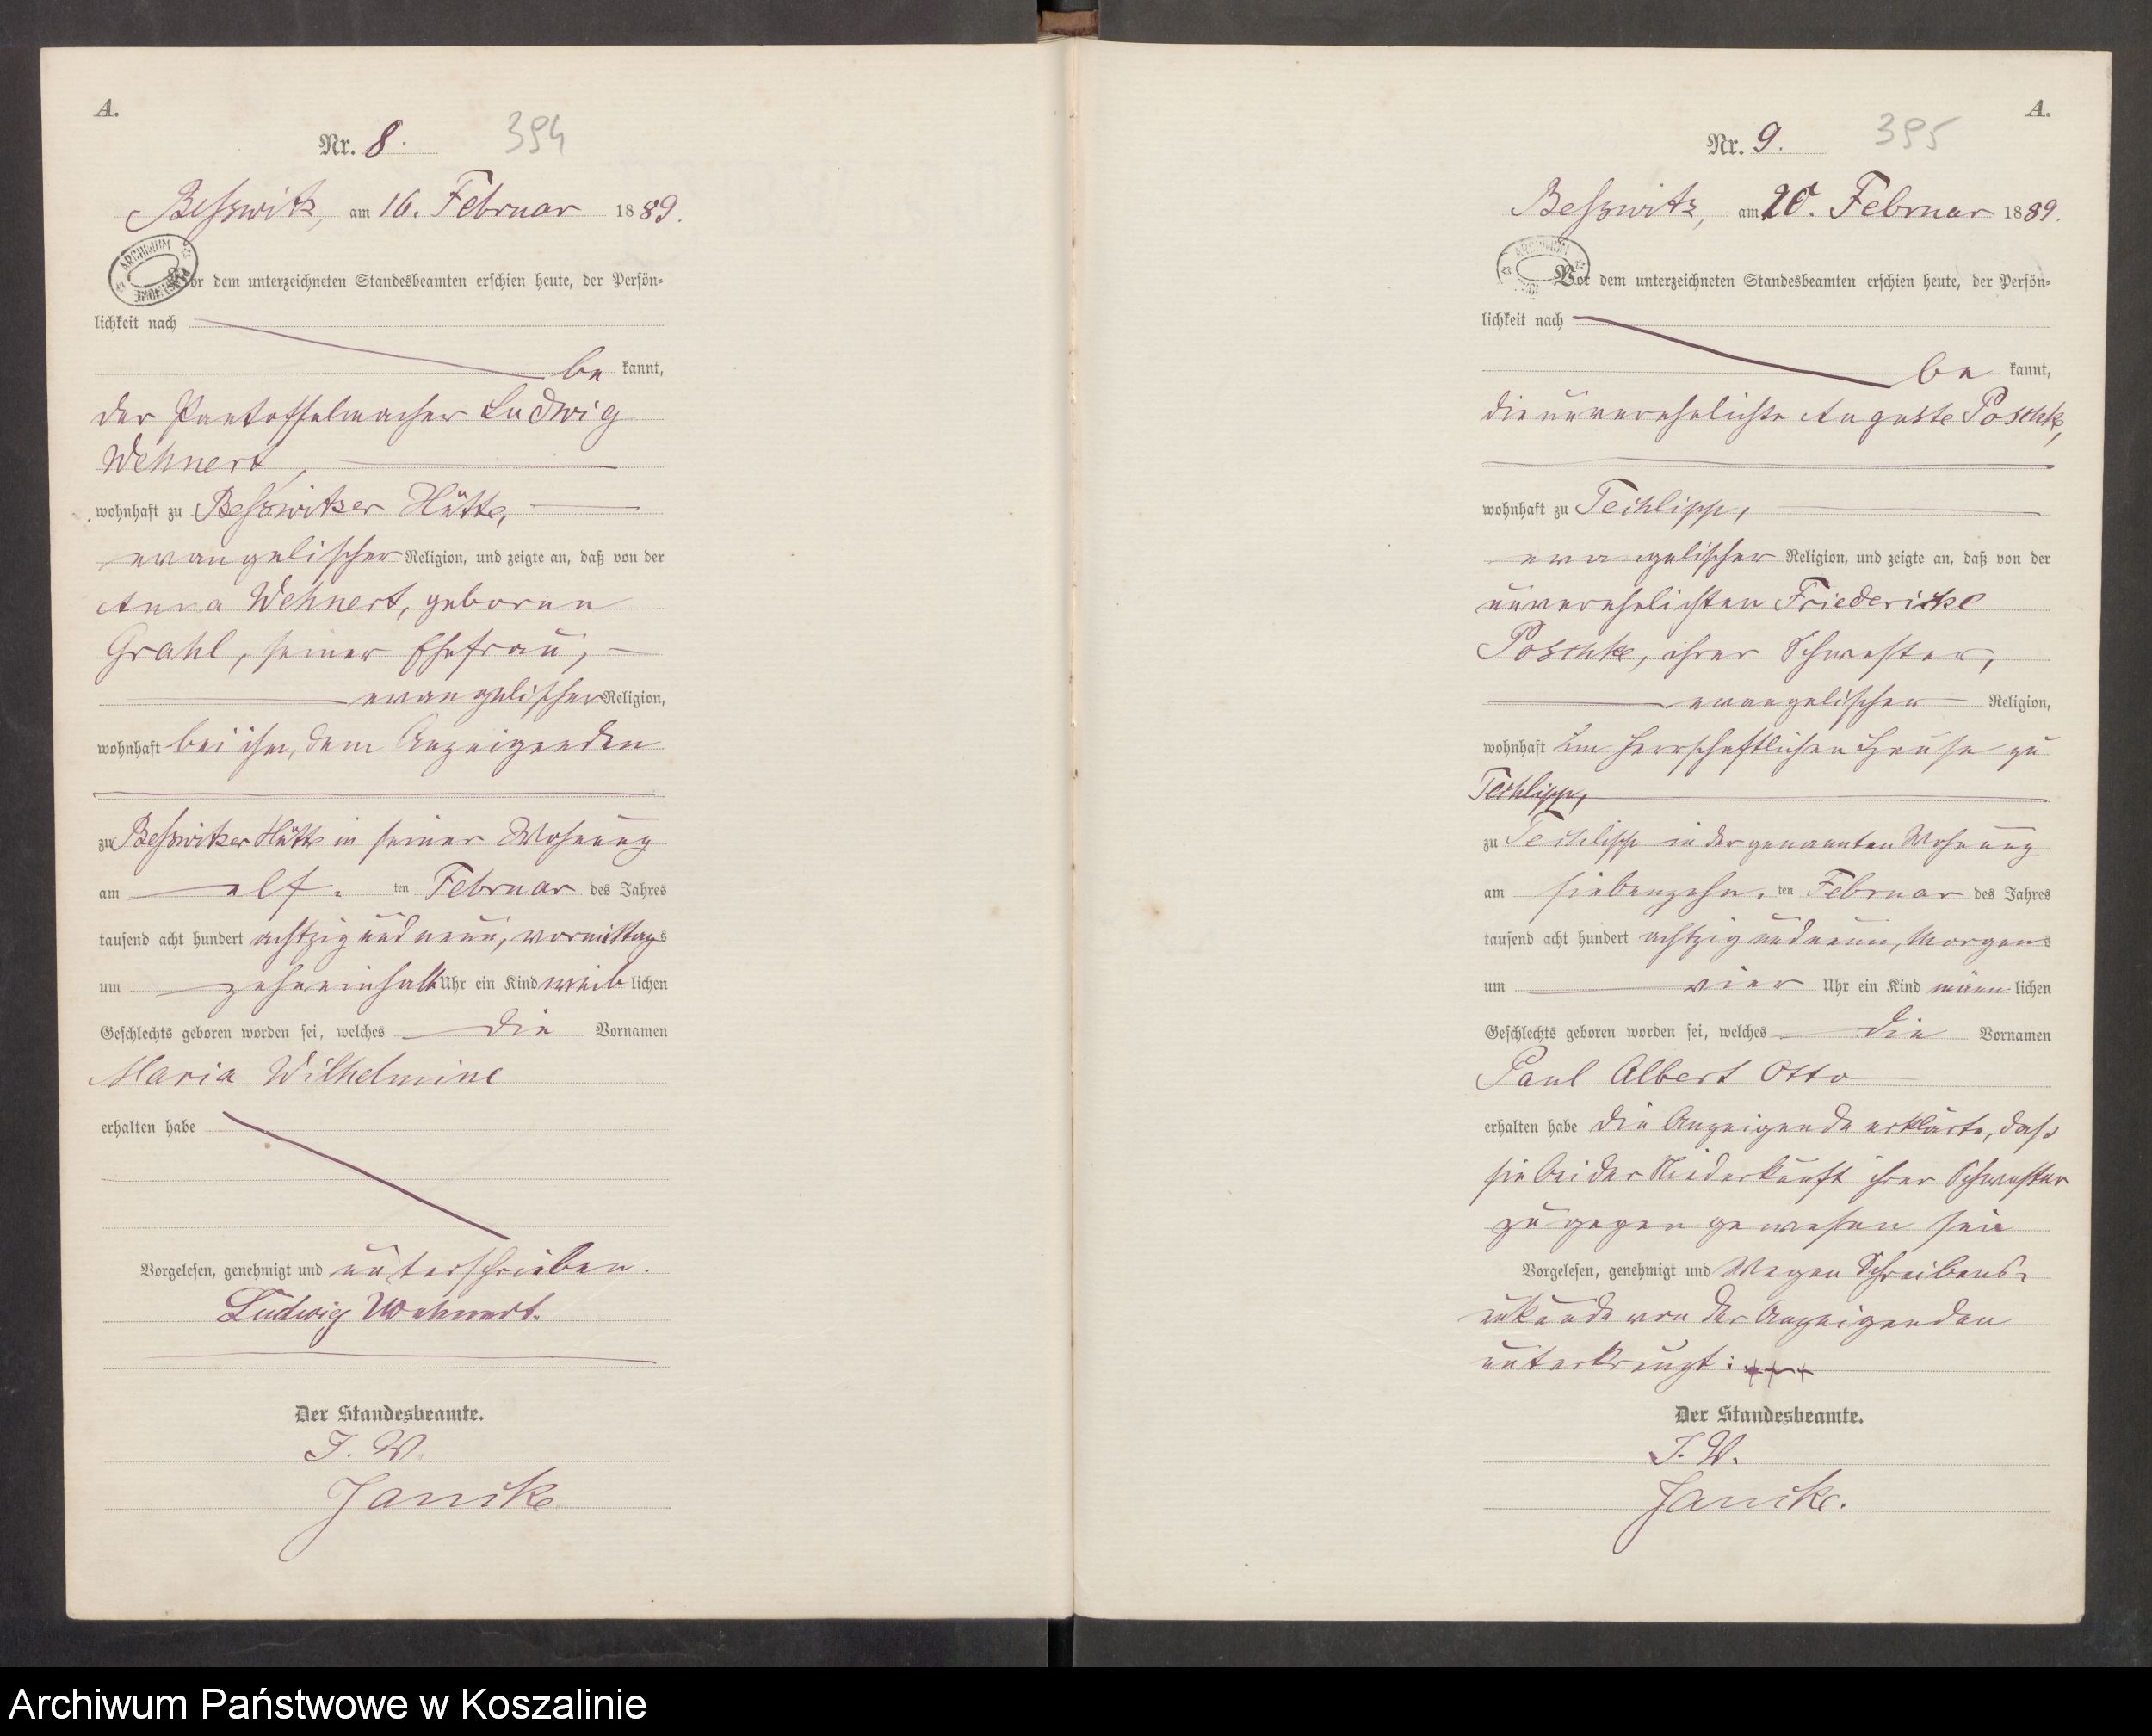 A.
Nr. 8. 394
Beßwitz, am 16. Februar 1889.
ARCHIWUM
Vor dem unterzeichneten Standesbeamten erschien heute, der Persön=
lichkeit nach
be kannt,
der Pantoffelmacher Ludwig
Wehnert,
wohnhaft zu Beßwitzer Hütte,
evangelischer Religion, und zeigte an, daß von der
Anna Wehnert, geborene
Grahl, seiner Ehefrau,
evangelischer Religion,
wohnhaft bei ihm, dem Anzeigenden
zu Beßwitzer Hütte in seiner Wohnung
am elf. ten Februar des Jahres
tausend acht hundert achtzig und neun, vormittags
um zehneinhalb Uhr ein Kind weib lichen
Geschlechts geboren worden sei, welches die Vornamen
Maria Wilhelmine
erhalten habe
Vorgelesen, genehmigt und unterschrieben.
Ludwig Wehnert.
Der Standesbeamte.
J. V.
Janike
A.
Nr. 9. 395
Beßwitz, am 20. Februar 1889.
ARCHIWUM
Vor dem unterzeichneten Standesbeamten erschien heute, der Persön=
lichkeit nach
be kannt,
die unverehelichte Auguste Poschke,
wohnhaft zu Techlipp,
evangelischer Religion, und zeigte an, daß von der
unverehelichten Friedericke
Poschke, ihrer Schwester,
evangelischer Religion,
wohnhaft im herrschaftlichen Hause zu
Techlipp,
zu Techlipp in der genannten Wohnung
am siebenzehn. ten Februar des Jahres
tausend acht hundert achtzig und neun, Morgens
um vier Uhr ein Kind männ lichen
Geschlechts geboren worden sei, welches die Vornamen
Paul Albert Otto
erhalten habe die Anzeigende erklärte, daß
sie bei der Niederkunft ihrer Schwester
zugegen gewesen sei
Vorgelesen, genehmigt und Wegen Schreibens=
unkunde von der Anzeigenden
unterkreuzt: +++
Der Standesbeamte.
J. V.
Janike.
Archiwum Państwowe w Koszalinie